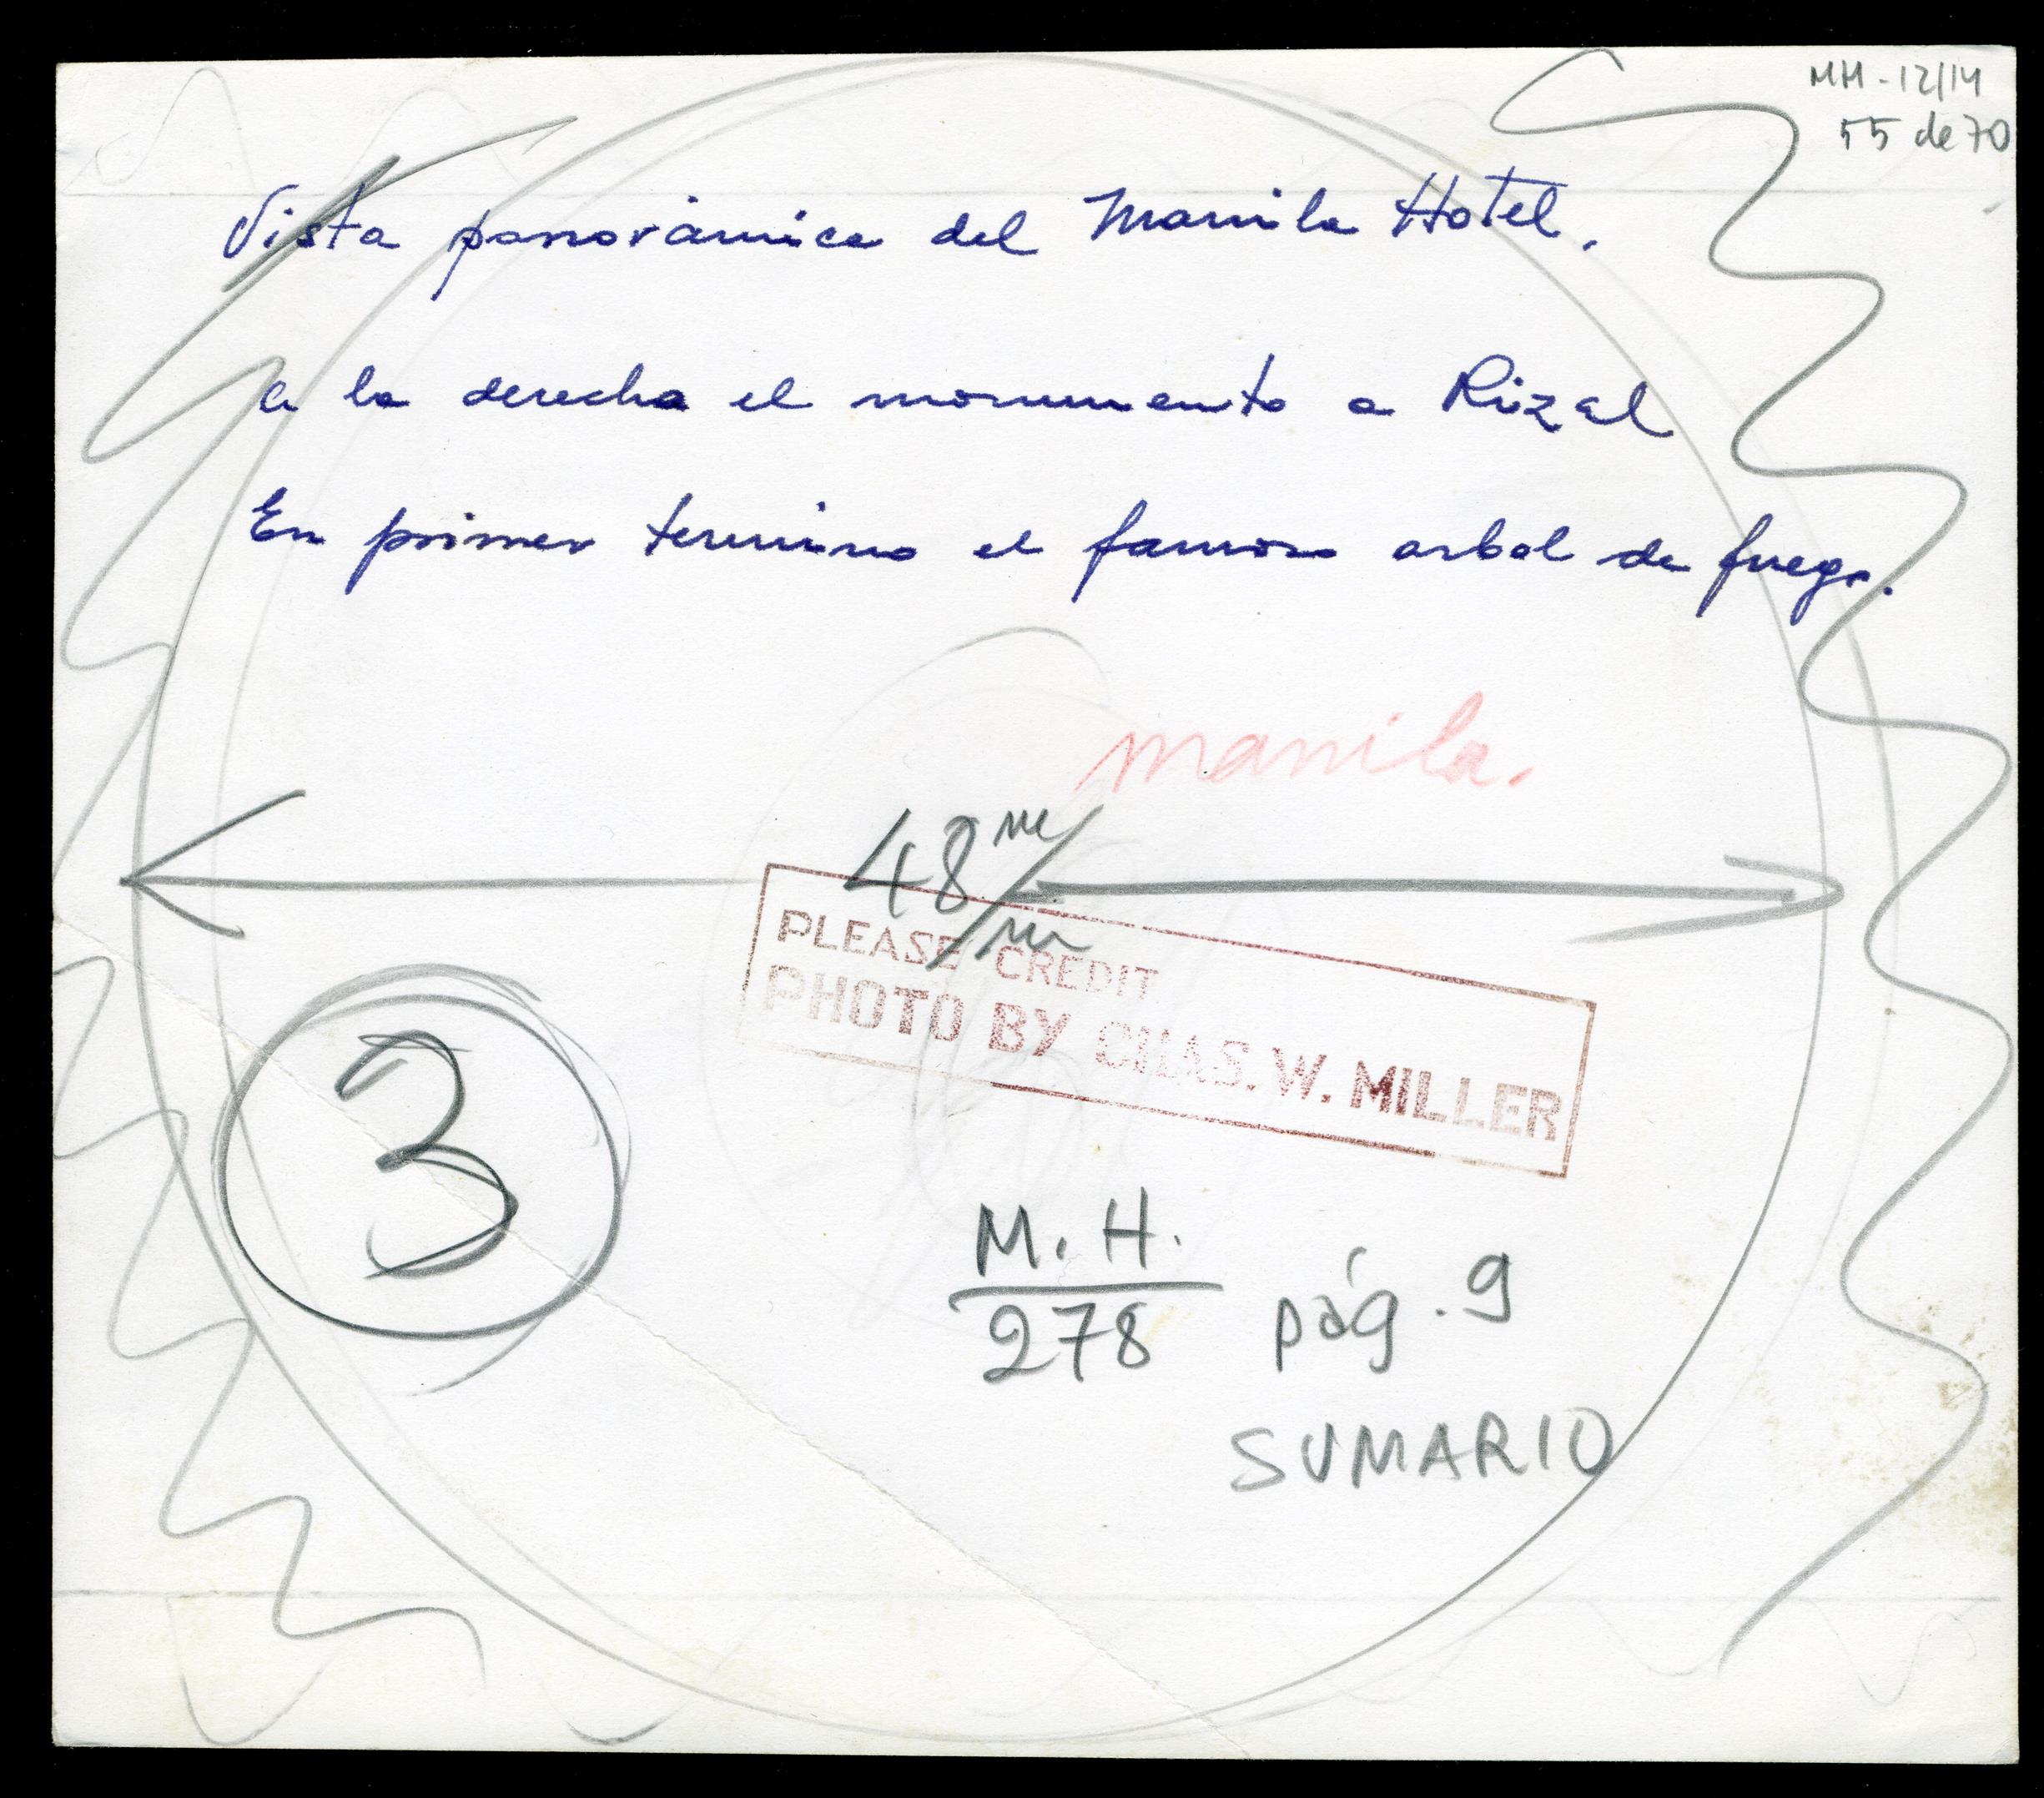 MH-12/14
55 de 70
Vista panorámica del Manila Hotel.
a la derecha el monumento a Rizal
En primer termino el famoso arbol de fuego.
manila.
48 m/m
PLEASE CREDIT
PHOTO BY CHAS. W. MILLER
3
M. H.
278 pág. 9
SUMARIO